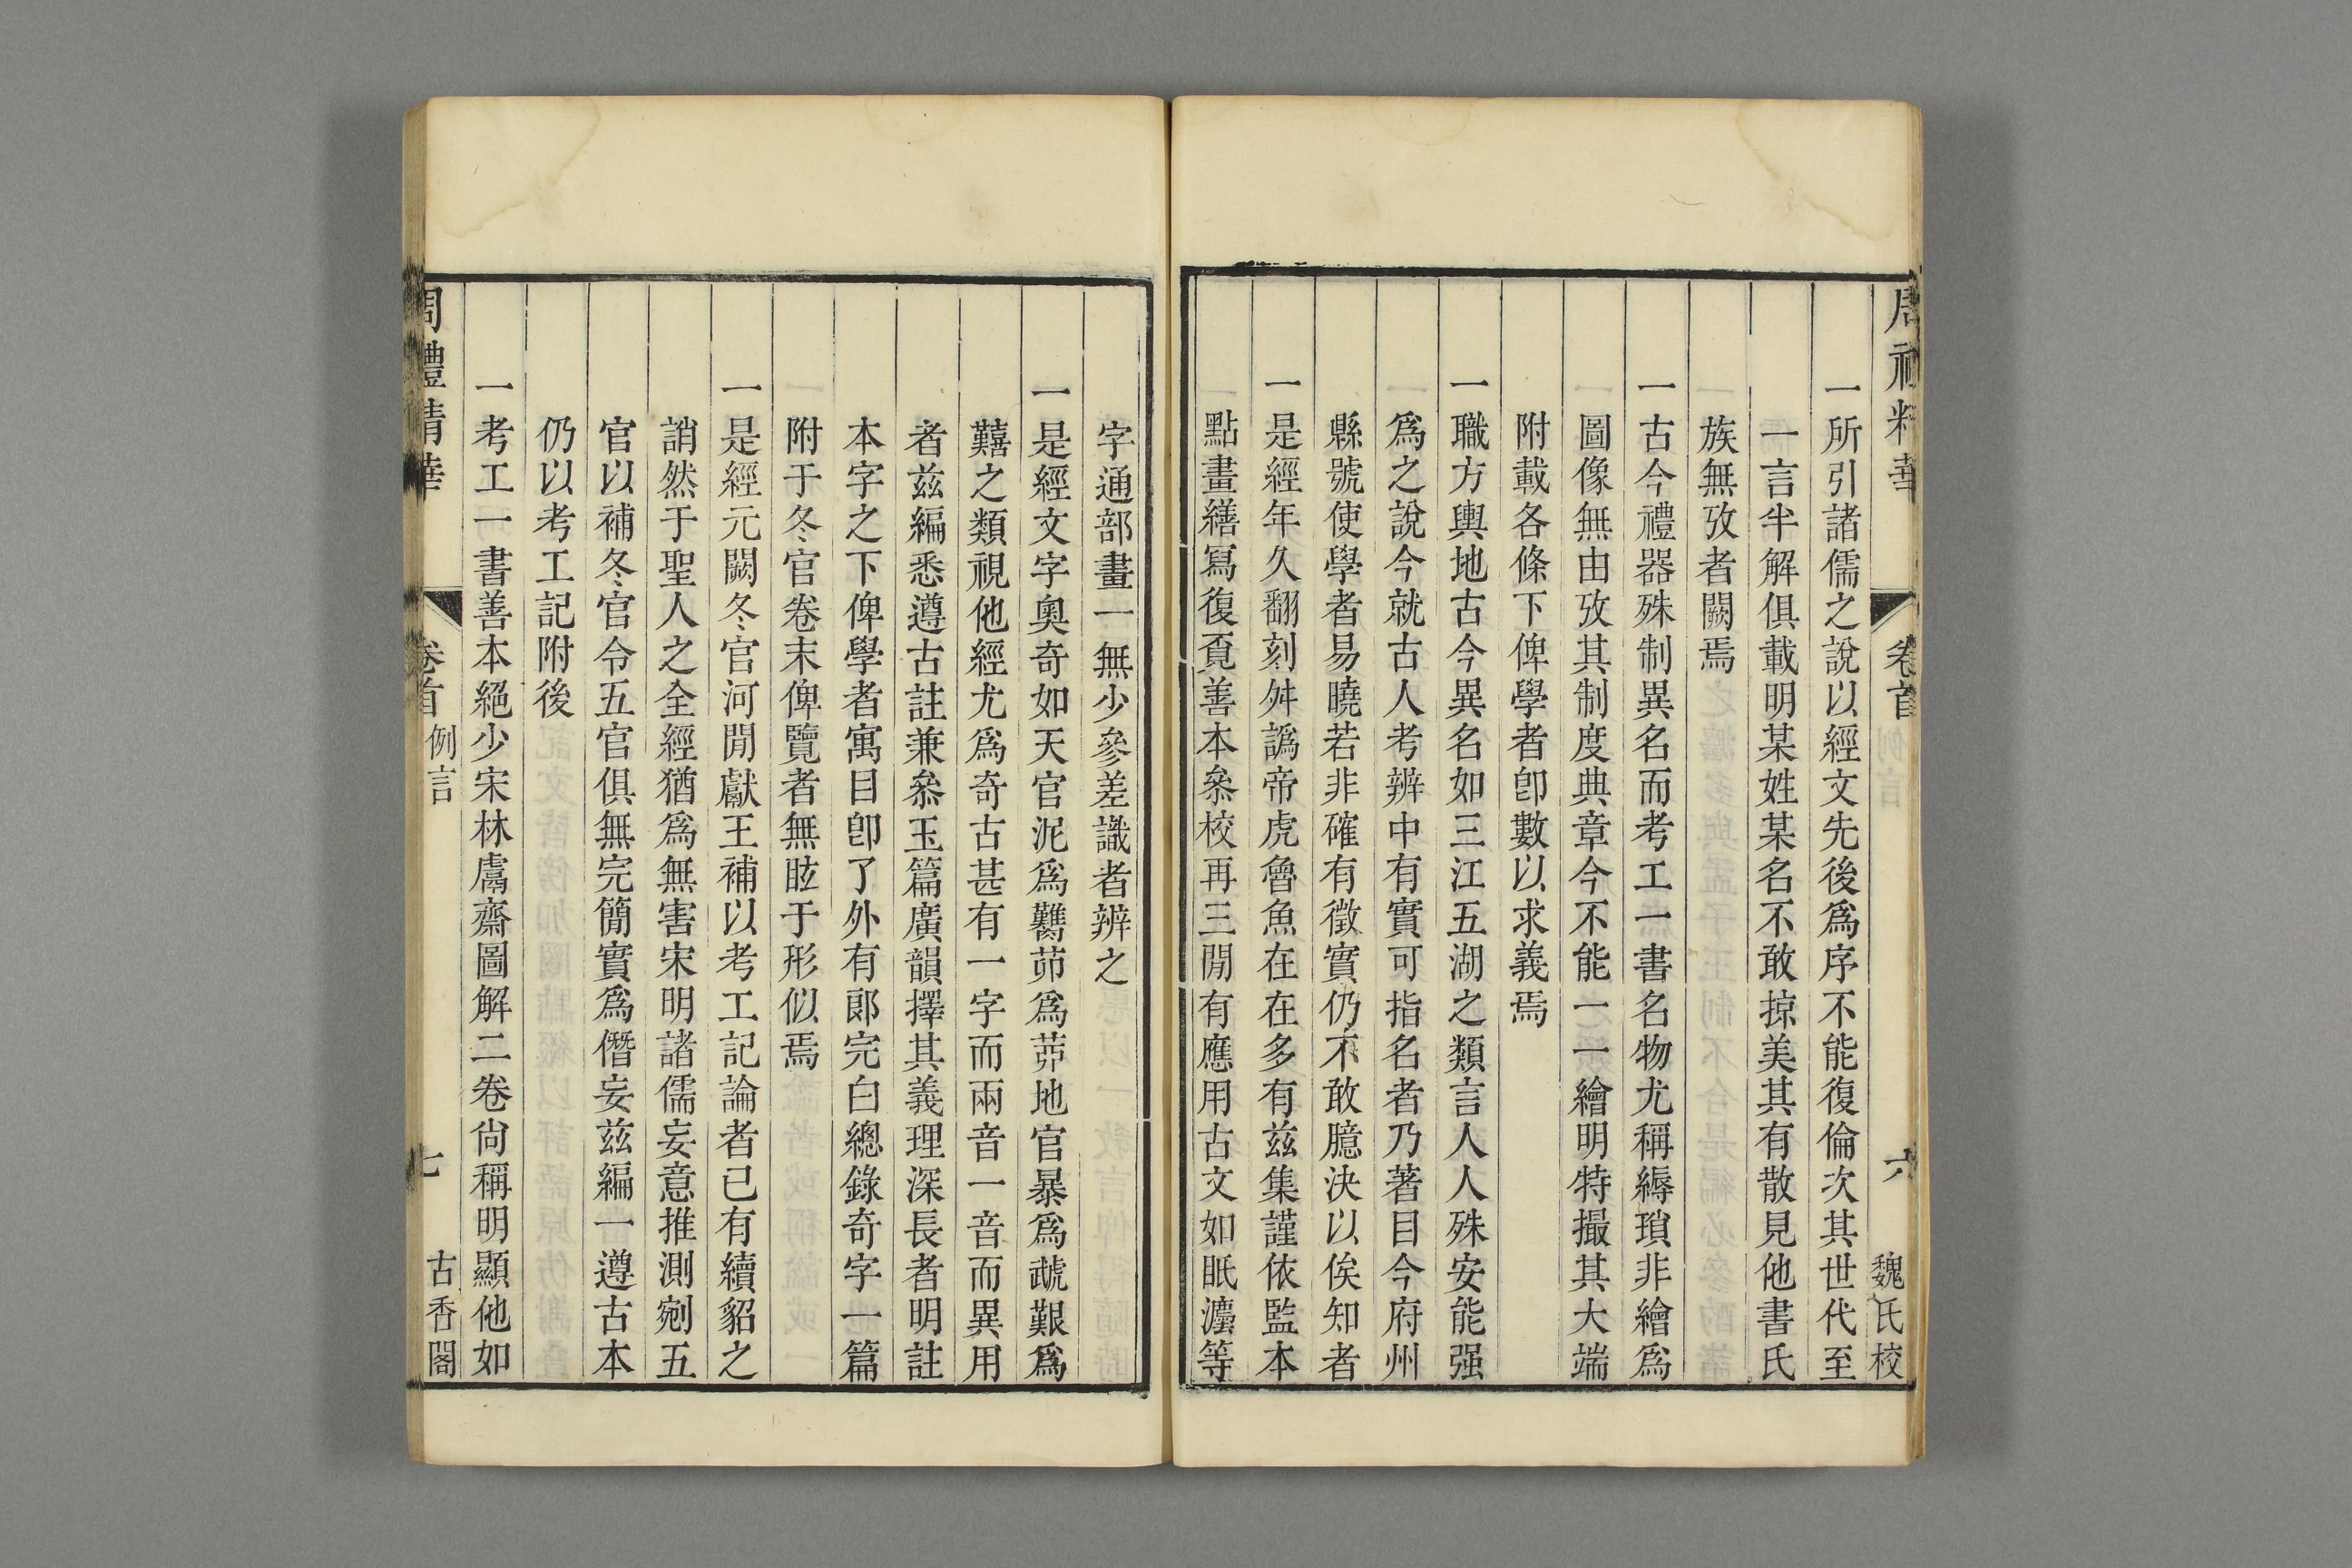 周禮精華 卷首 六 魏氏校
一所引諸儒之說以經文先後爲序不能復倫次其世代至
一言半解俱載明某姓某名不敢掠美其有散見他書氏
族無攷者闕焉
一古今禮器殊制異名而考工一書名物尤稱縟瑣非繪爲
圖像無由攷其制度典章今不能一一繪明特撮其大端
附載各條下俾學者卽數以求義焉
一職方輿地古今異名如三江五湖之類言人人殊安能强
爲之說今就古人考辨中有實可指名者乃著目今府州
縣號使學者易曉若非確有徵實仍不敢臆決以俟知者
一是經年久翻刻舛譌帝虎魯魚在在多有兹集謹依監本
點畫繕冩復覔善本叅校再三閒有應用古文如眂灋等
字通部畫一無少參差識者辨之
一是經文字奧奇如天官泥爲臡茆爲茆地官暴爲虣艱爲
囏之類視他經尤爲奇古甚有一字而兩音一音而異用
者兹編悉遵古註兼叅玉篇廣韻擇其義理深長者明註
本字之下俾學者寓目卽了外有郞完白總錄奇字一篇
附于冬官卷末俾覽者無眩于形似焉
一是經元闕冬官河閒獻王補以考工記論者已有續貂之
誚然于聖人之全經猶爲無害宋明諸儒妄意推測剜五
官以補冬官令五官俱無完簡實爲僭妄兹編一遵古本
仍以考工記附後
一考工一書善本絕少宋林鬳齋圖解二卷尙稱明顯他如
周禮精華 卷首 例言 七 古香閣